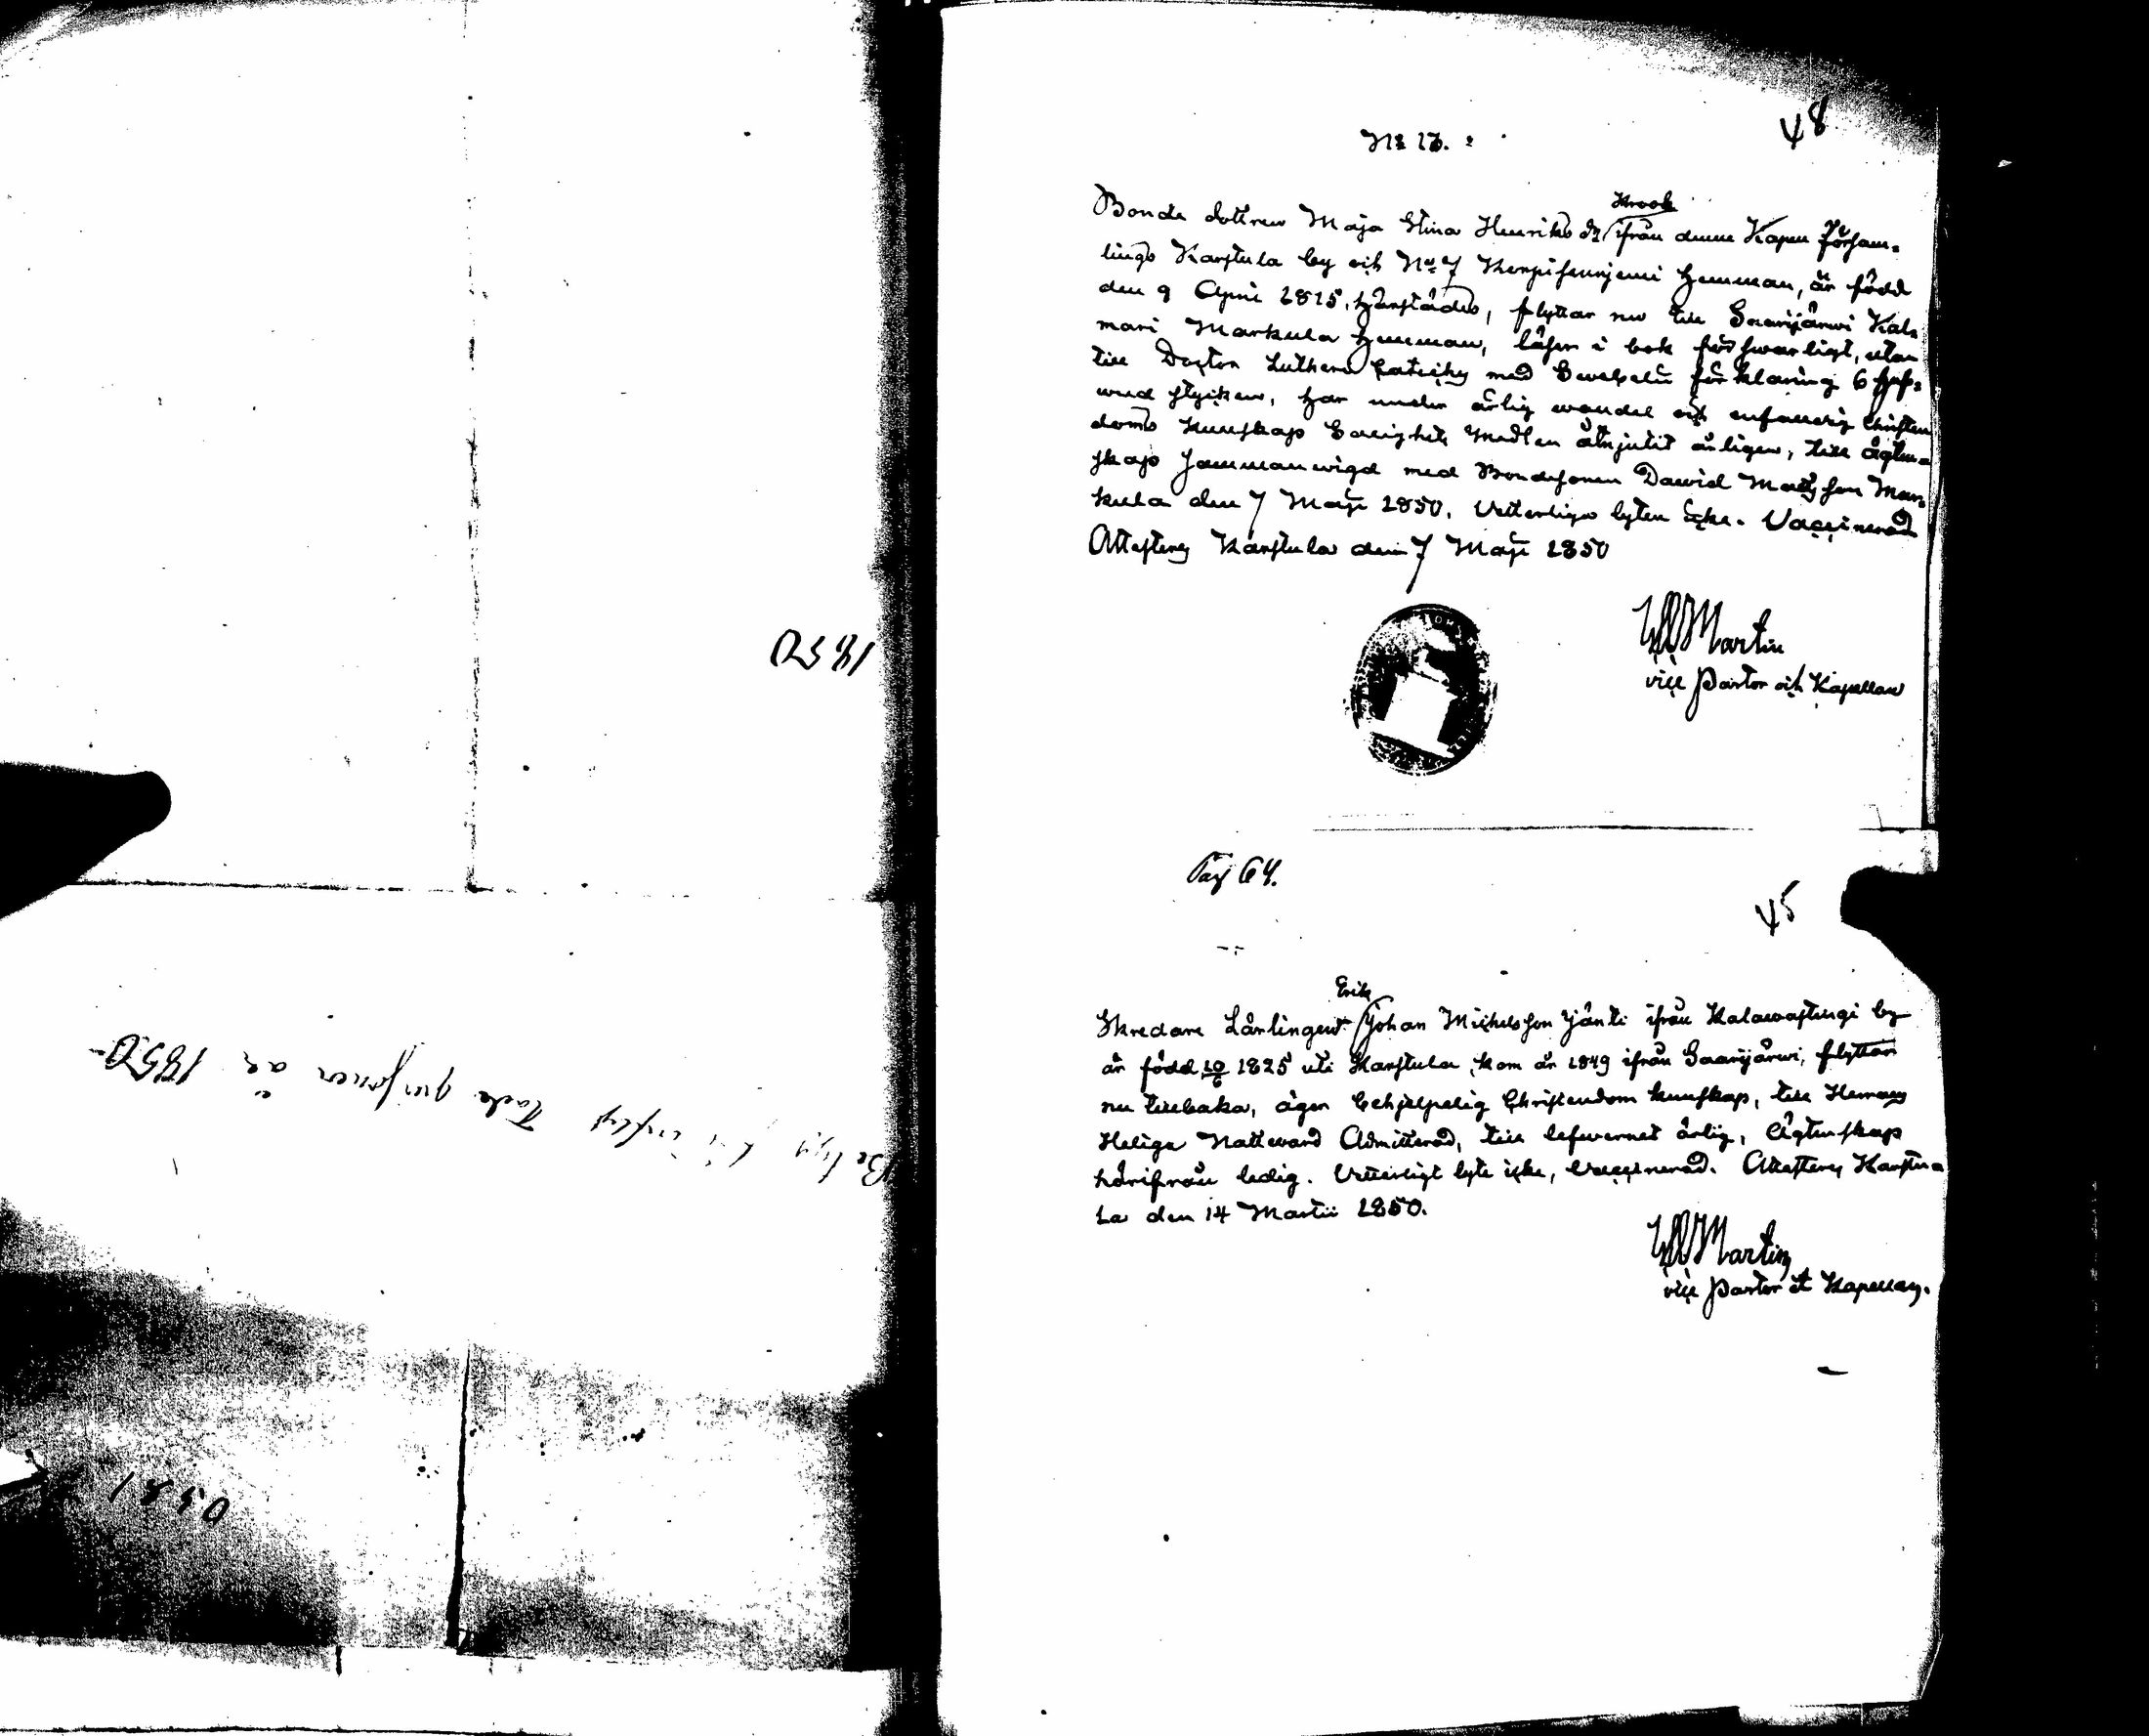 1850
Belägg för inflyttade personer år 1850
1850
48
No 13.
Krook
Bonde dottren Maja Stina Henriks dr ifrån denne Kapell Församlings
lings Karstula by och No 7 hemman, är född
den 9 April 1825 härstädes, flyttar nu till Saarijärvi Kal=
mari Markula hemman, läser i bok försvarligt, utan
till Doctor Lutheri Cateches med Svebelii förklaring 6 huf=
wud stycken, har under ärlig wandel och enfaldig Christen
doms kunskap Salighets Medlen åtnjutit årligen, till ägten=
skap sammanwigd med Bondesonen David Matsson Mar=
kula den 7 Maji 1850. Vetterligen lyten icke. Vaccinerad
Attesterar Karstula den 7 Maji 1850
Martin
vice Pastor och Kapellan
Pag 64.
45
Erik
Skredare Lärlingen Johan Michelsson Jänti ifrån Kalawastingi by
är född 10/6 1825 uti Karstula, kom år 1849 ifrån Saarijärwi, flyttar
nu tillbaka, äger behjelpelig Christendom kunskap, till Herrans
Heliga Nattvard Admitterad, till lefwernet ärlig, Ägtenskap
härifrån ledig. Vetterligt lyte icke, Vaccinerad. Attesterar Karstu=
la den 14 Martii 1850.
Martin
vice Pastor et Kapellan.